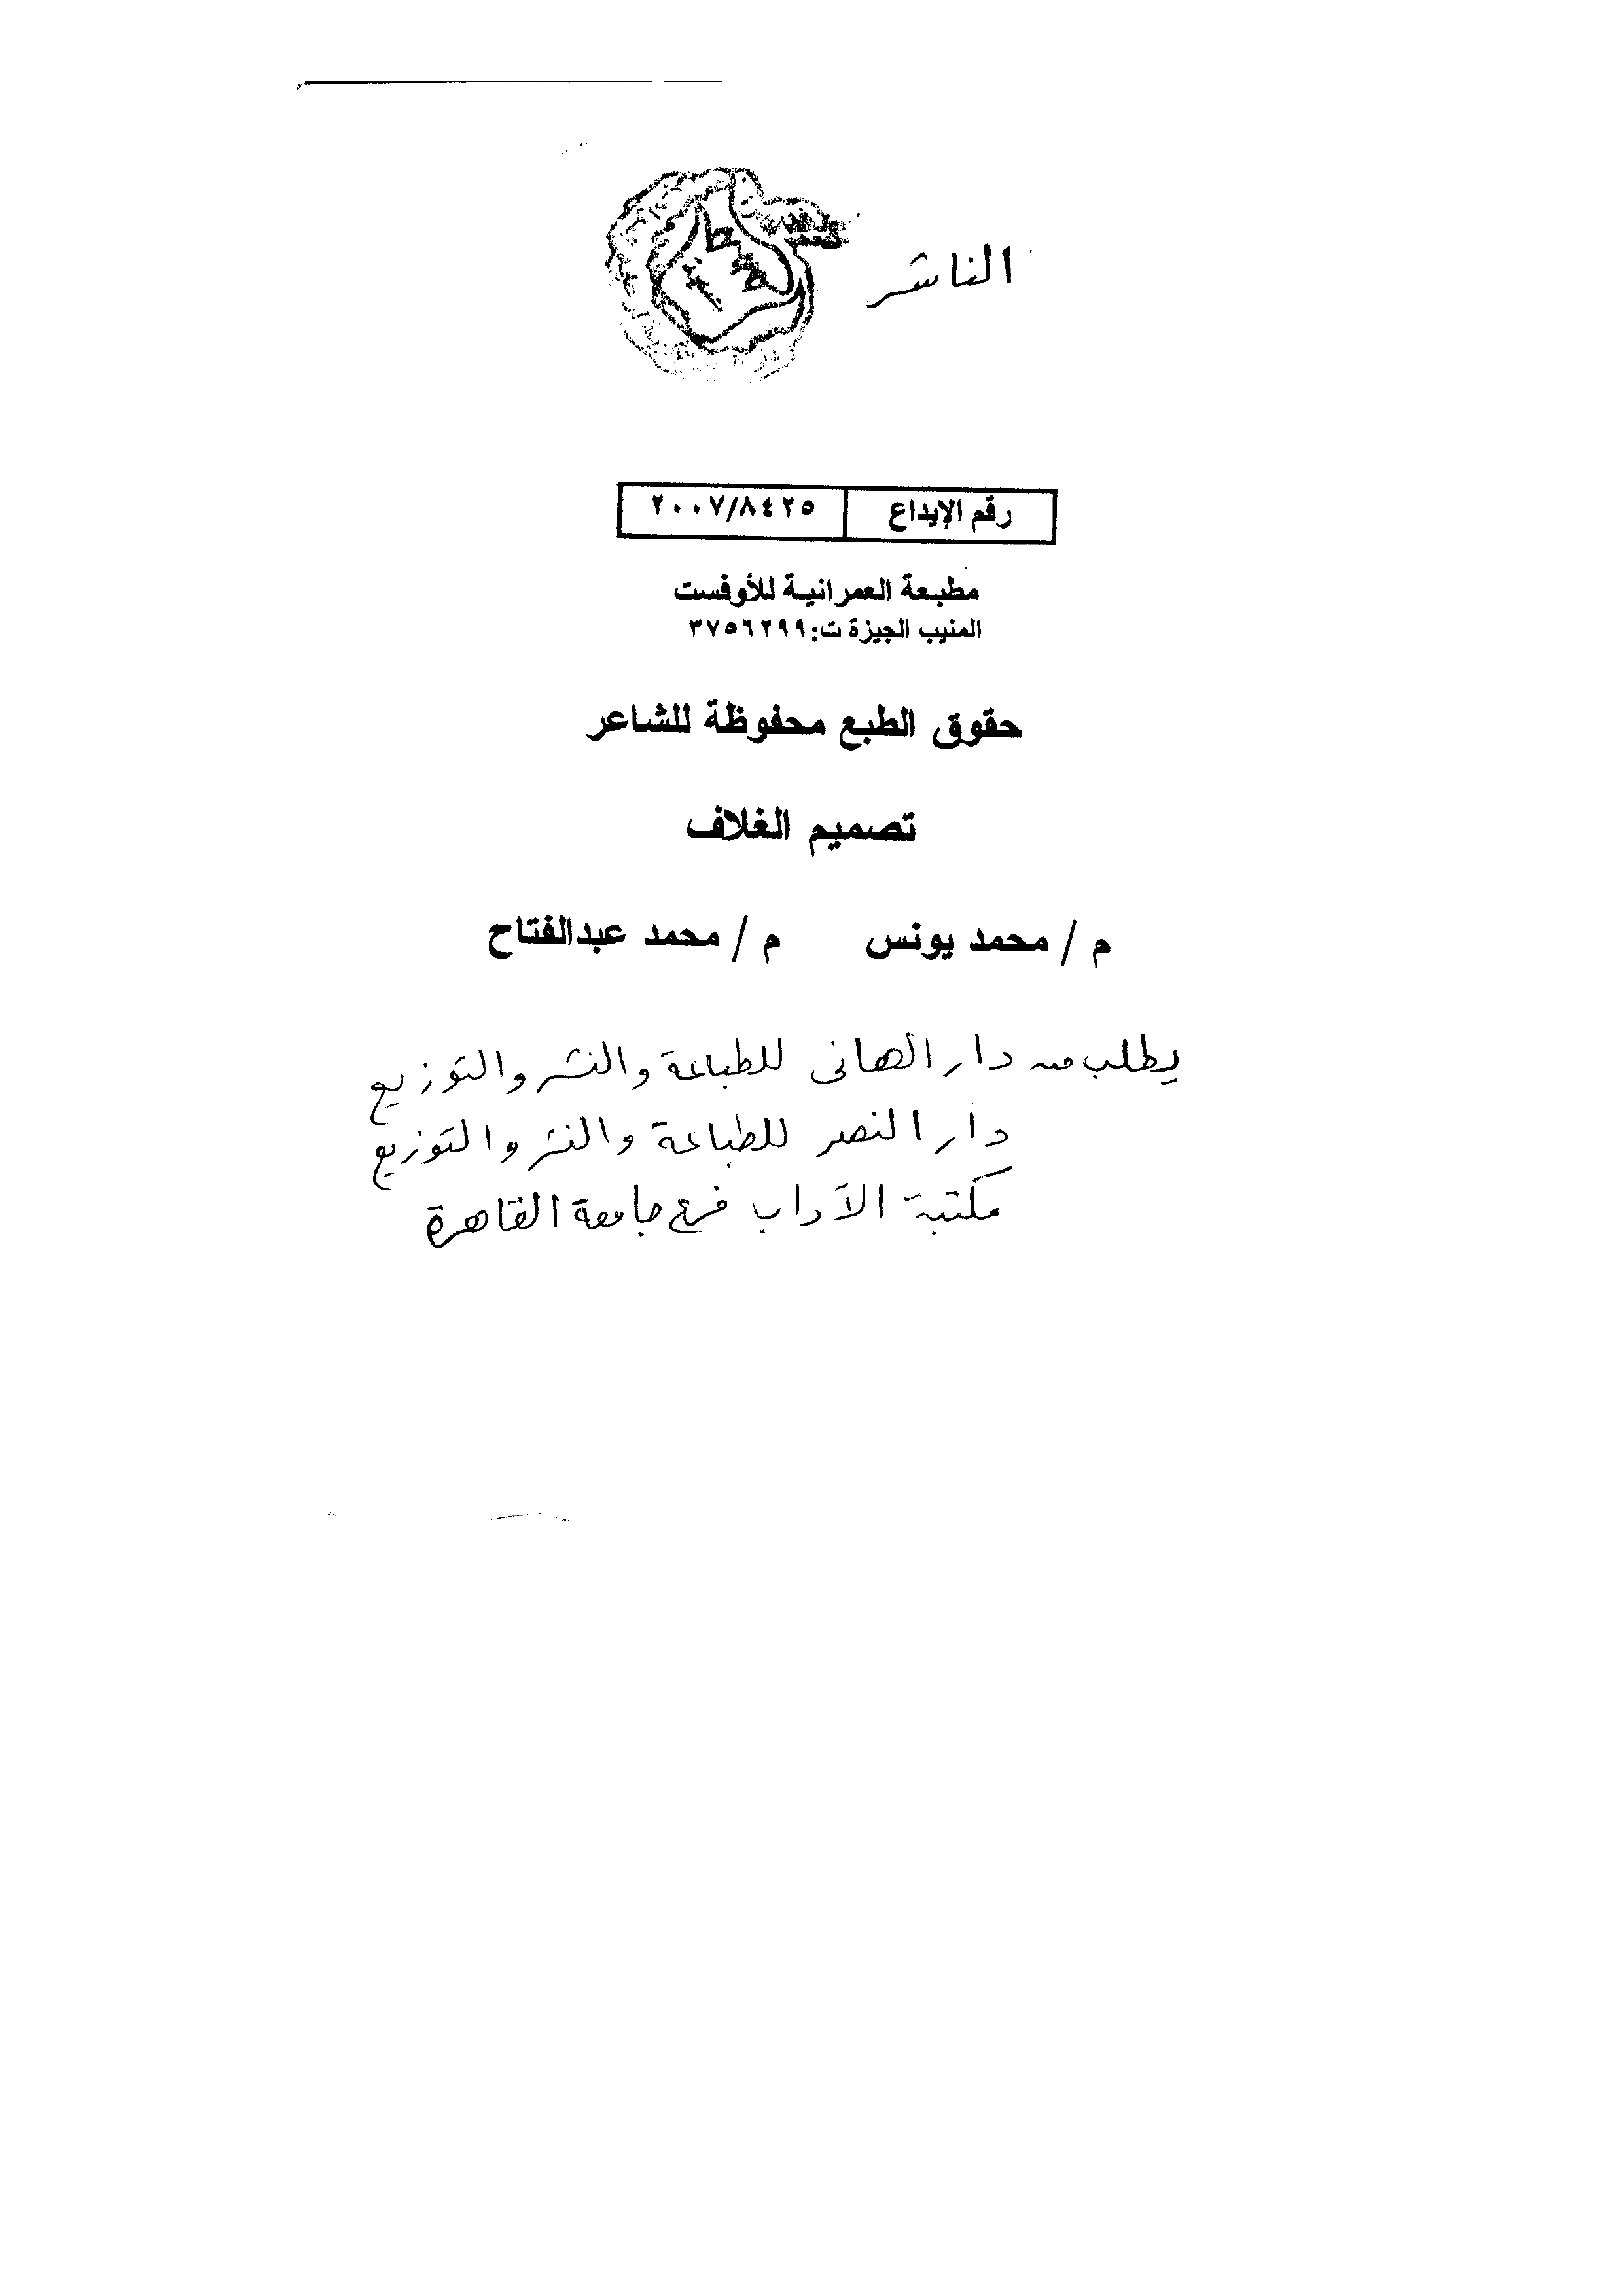 الناشر
رقم الإيداع ٢٠٠٧/٨٤٢٥
مطبعة العمرانية للأوفست
المنيب الجيزة ت:٣٧٥٦٢٩٩
حقوق الطبع محفوظة للشاعر
تصميم الغلاف
م / محمد يونس م / محمد عبدالفتاح
يطلب من دار الهانى للطباعة والنشر والتوزيع
دار النصر للطباعة والنشر والتوزيع
مكتبة الآداب فرع جامعة القاهرة